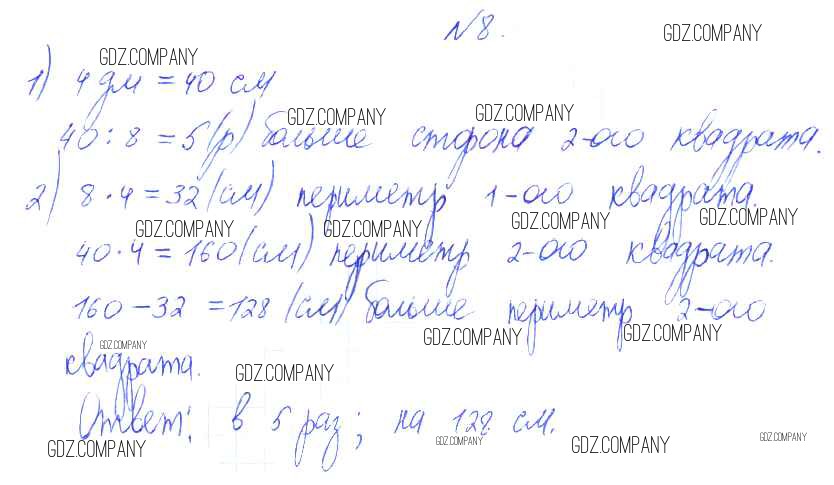 №8.
GDZ.COMPANY
GDZ.COMPANY
1) 4 дм = 40 см
GDZ.COMPANY GDZ.COMPANY
40 : 8 = 5 (р) больше сторона 2-ого квадрата.
2) 8 · 4 = 32 (см) периметр 1-ого квадрата.
GDZ.COMPANY GDZ.COMPANY GDZ.COMPANY GDZ.COMPANY
40 · 4 = 160 (см) периметр 2-ого квадрата.
160 – 32 = 128 (см) больше периметр 2-ого
GDZ.COMPANY GDZ.COMPANY GDZ.COMPANY
квадрата.
GDZ.COMPANY
Ответ: в 5 раз; на 128 см.
GDZ.COMPANY GDZ.COMPANY GDZ.COMPANY GDZ.COMPANY